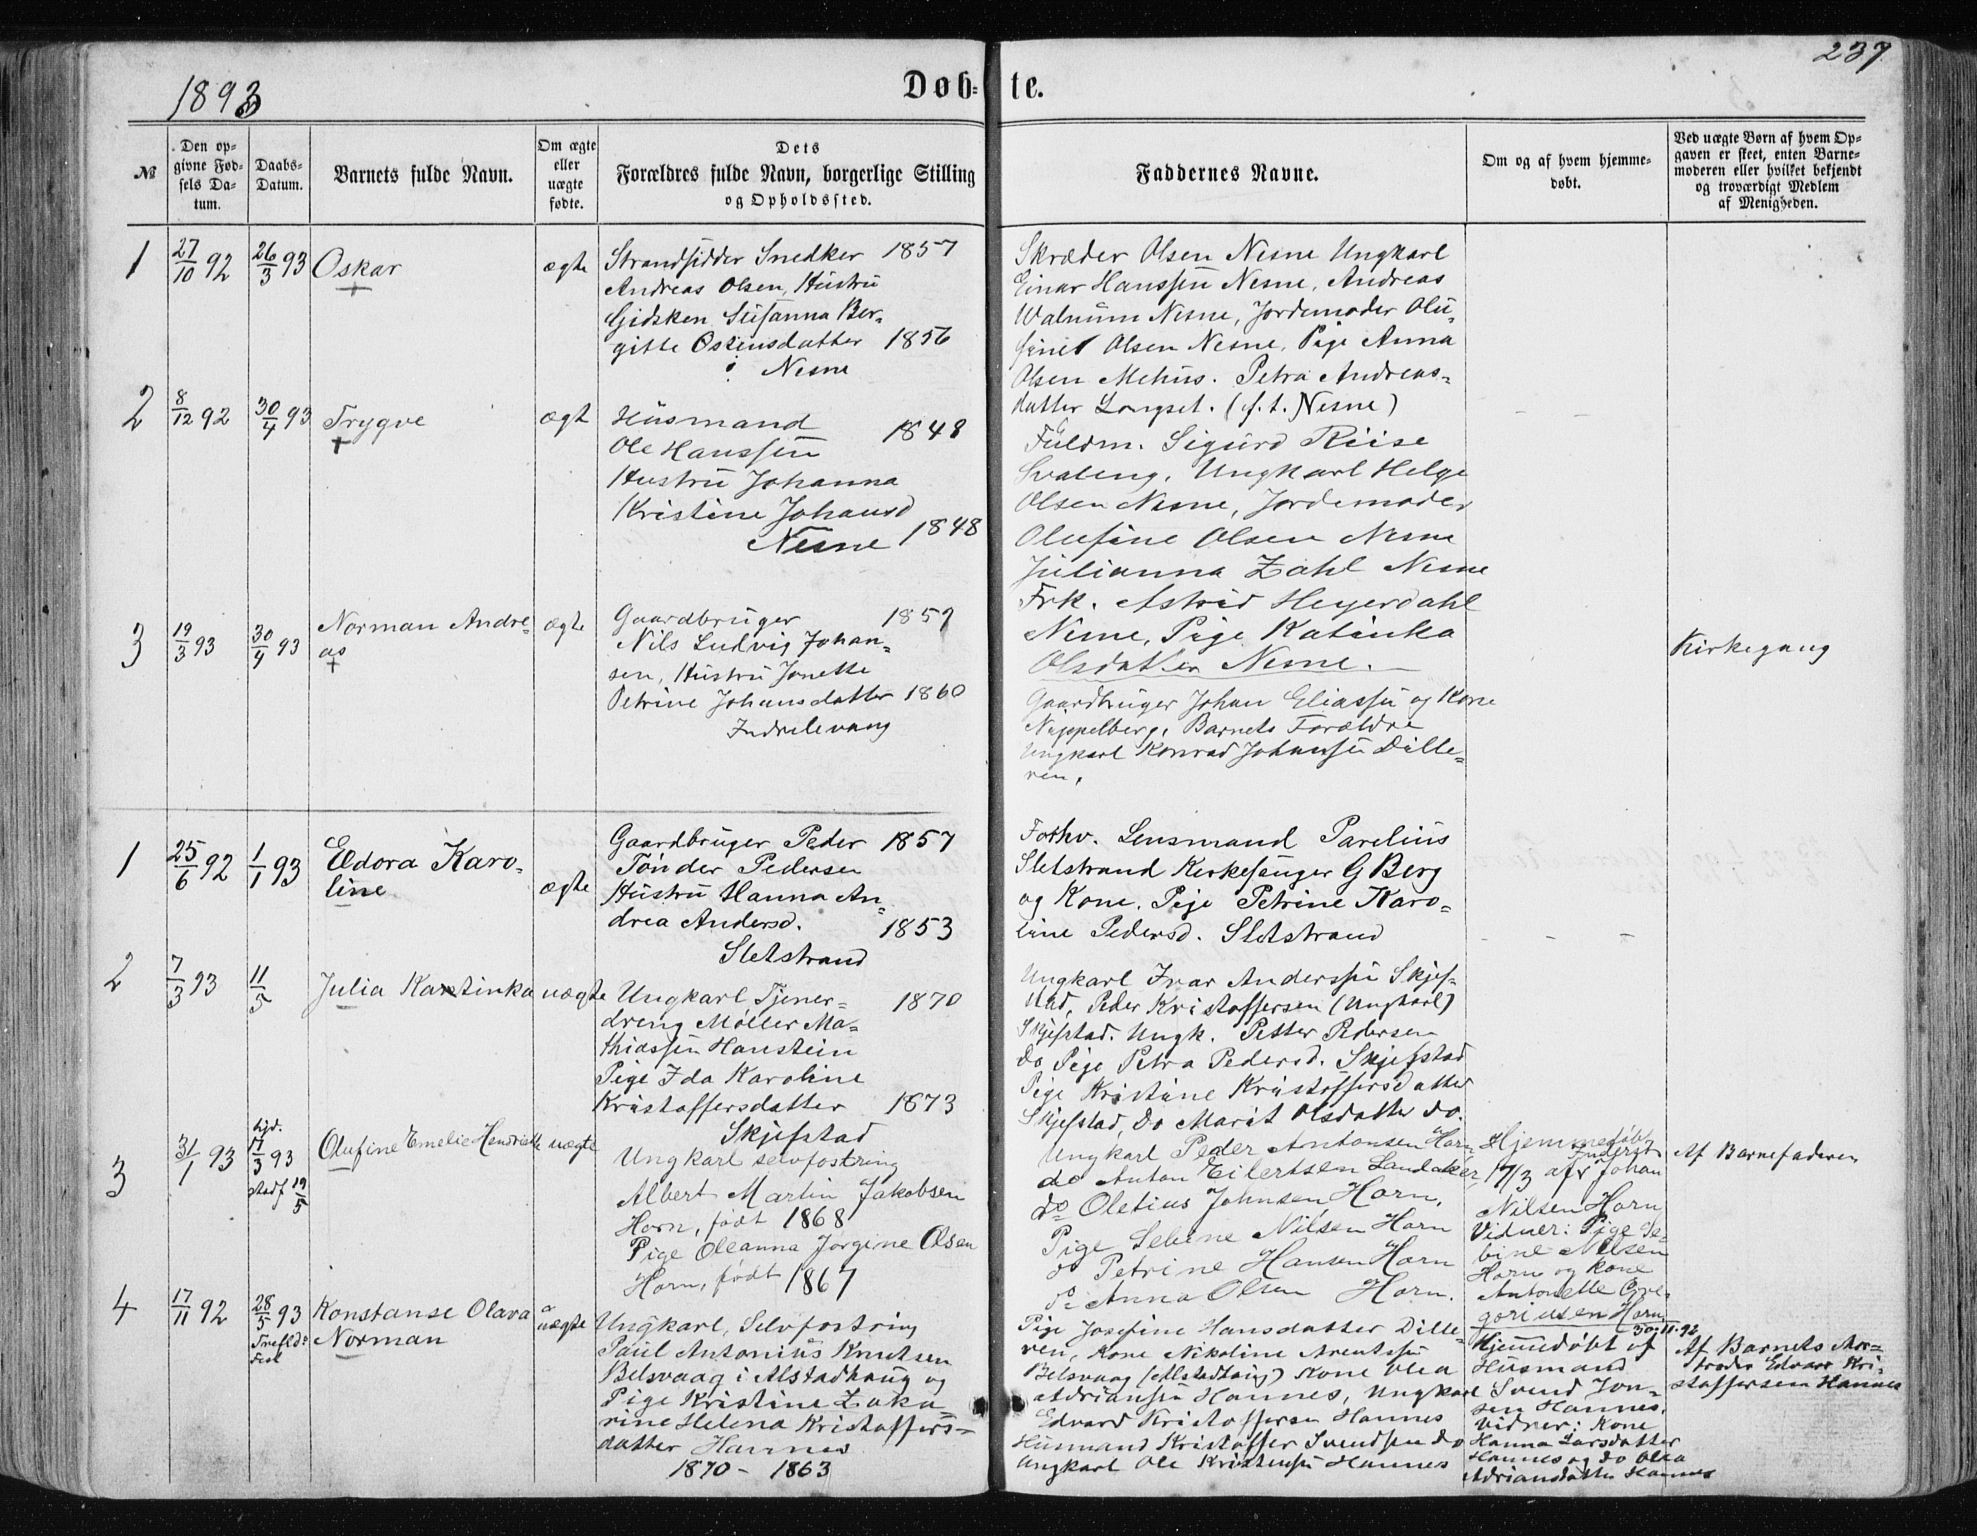 237
1893
Døb-te.
№
Den op-
givne Fød-
sels Da-
tum.
Daabs-
Datum.
Barnets fulde Navn.
Om ægte
eller
uægte
fødte.
Dets
Forældres fulde Navn, borgerlige Stilling
og Opholdssted.
Faddernes Navne.
Om og af hvem hjemme-
døbt.
Ved uægte Børn af hvem Op-
gaven er skeet, enten Barne-
moderen eller hvilket bekjendt
og troværdigt Medlem
af Menigheden.
1
27/10 92
26/3 93
Oskar
+
ægte
Strandsidder Snedker 1857
Andreas Olsen, Hustru
Gidsken Susanna Ber-
gitte Ostensdatter 1856
i Nesne
Skræder Olsen Nesne Ungkarl
Einar Hanssen Nesne, Andreas
Walnum Nesne, Jordemoder Olu-
fine Olsen Nesne, Pige Anna
Olsen Mehus. Petra Andreas-
datter Longset. (f. t. Nesne)
2
8/12 92
30/4 93
Trygve
+
ægt
Husmand
Ole Hanssen 1848
Hustru Johanna
Kristine Johansd
Nesne 1848
Fuldm. Sigurd Riise
Svaleng, Ungkarl Helge
Olsen Nesne, Jordemoder
Olufine Olsen Nesne
Julianna Zahl Nesne
Frk. Astrid Heyerdahl
Nesne, Pige Katinka
Olsdatter Nesne.
3
19/3 93
30/4 93
Norman Andre-
as
+
ægte
Gaardbruger
Nils Ludvig Johan-
sen, Hustru Jonette
Petrine Johansdatter 1860
Indrelevang
Gaardbruger Johan Eliassen og Kone
Nappelberg, Barnets Forældre
Ungkarl Konrad Johansen Dille-
ren,
Kirkegang
1
25/6 92
1/1 93
Eldora Karo-
line
ægte
Gaardbruger Peder 1857
Tønder Pedersen
Hustru Hanna An-
drea Andersd. 1853
Sletstrand
Forhv. Lensmand Parelius
Sletstrand Kirkesanger G Berg
og Kone, Pige Petrine Karo-
line Pedersd. Sletstrand
2
7/3 93
11/5
Julia Katinka
uægte
Ungkarl Tjener- 1870
dreng Møller Ma-
thiassen Hanstein
Pige Ida Karoline
Kristoffersdatter 1873
Skjefstad
Ungkarl Ivar Anderssen Skjef-
stad, Peder Kristoffersen (Ungkarl)
Skjefstad. Ungk. Petter Pedersen
do Pige Petra Pedersd. Skjefstad
Pige Kristine Kristoffersdatter
Skjefstad, do Marit Olsdatter do.
3
31/1 93
17/3 93
stadf 19/5
Olufine Emelie Hendriette
uægte
Ungkarl selvfostring
Albert Martin Jakobsen
Horn, født 1868
Pige Oleanna Jørgine Olsen
Horn, født 1867
Ungkarl Peder Antonsen Horn
do Anton Eilertsen Landaker,
do Oletius Johnsen Horn,
Pige Sebine Nilsen Horn
do Petrine Hansen Horn
Anna Olsen Horn.
Hjemmedøbt
17/3 af Johan
Nilsen Horn
Vidner: Pige Se-
bine Nilsen
Horn og kone
Antonette Gre-
goriusen Horn
Af Barnefaderen
4
17/11 92
28/5 93
Konstanse Olava
Norman
uægte
Ungkarl, Selvfostring
Paul Antonius Knutsen
Belsvaag i Alstadhaug og
Pige Kristine Zaka-
rine Helena Kristoffers-
datter Hannes
1870 - 1863
Pige Josefine Hansdatter Dille-
ren, Kone Nikoline Arentsen
Belsvaag (Alstadhaug) Kone Olea
Adriansen Hannes, Ungkarl
Edvard Kristoffersen Hannes
Husmand Kristoffer Svendsen do
Ungkarl Ole Kristensen Hannes
30/11 92
Hjemmedøbt af
Husmand
Svend Jon-
sen Hannes.
Vidner: Kone
Hanna Larsdatter
Hannes og do Olea
Adriansdatter Hannes
Af Barnets Mor-
broder Edvard Kri-
stoffersen Hannes